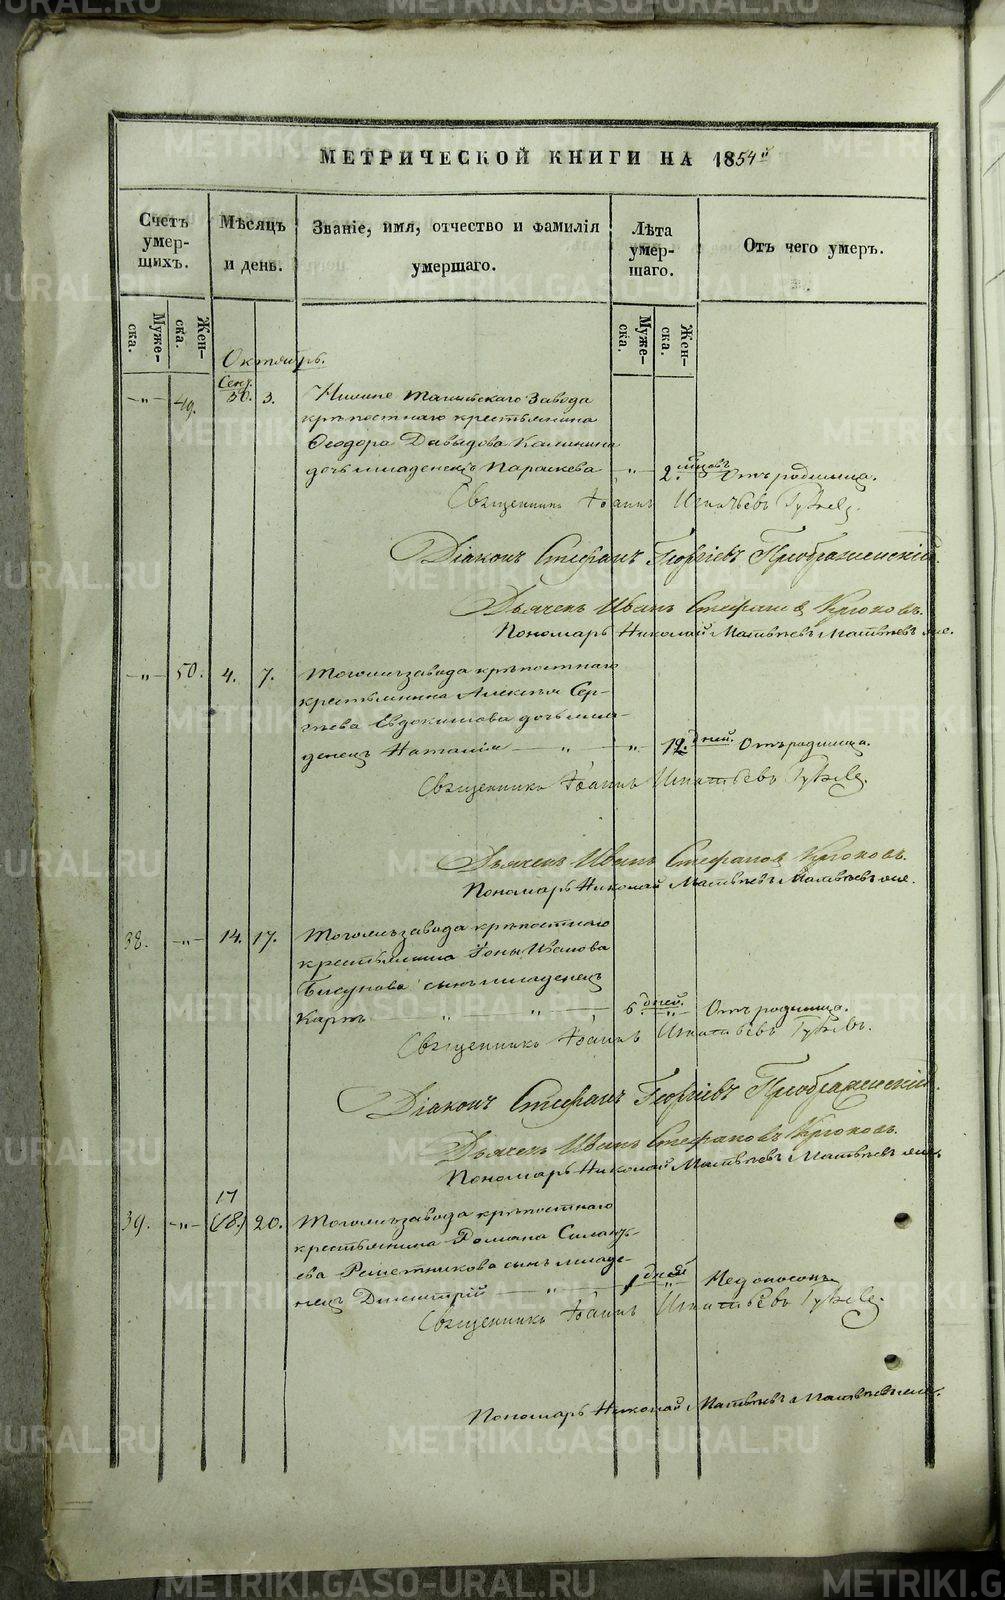 МЕТРИЧЕСКОЙ КНИГИ НА 1854й
Счетъ умер-шихъ.
Мѣсяцъ и день.
Званіе, имя, отчество и фамилія умершаго.
Лѣта умер-шаго.
Отъ чего умеръ.
Муже-ска.
Жен-ска.
Муже-ска.
Жен-ска.
Октябрь.
Сент.
—„— 49. 30. 3. Нижне Тагильскаго Завода
крѣпостнаго крестьянина
Ѳеодора Давыдова Калинина
дочь младенецъ Параскева —„— 2. мѣсяцовъ Отъ родимца.
Священникъ Іоаннъ Игнатьевъ
Діаконъ Стефанъ Георгіевъ Преображенскій.
Дьячекъ Иванъ Стефановъ Крюковъ.
Пономарь Николай Матвѣевъ Матвѣевъ же.
—„— 50. 4. 7. Тогожъ завода крѣпостнаго
крестьянина Алексѣя Сер-
гѣева Евдокимова дочь мла-
денецъ Наталія — „ —„— 12. дней. Отъ родимца.
Священникъ Іоаннъ Игнатьевъ
Дьячекъ Иванъ Стефановъ Крюковъ.
Пономарь Николай Матвѣевъ Матвѣевъ же.
38. —„— 14. 17. Тогожъ завода крѣпостнаго
крестьянина Іоны Иванова
сынъ младенецъ
Карпъ „ „ 6 дней. „ Отъ родимца.
Священникъ Іоаннъ Игнатьевъ
Діаконъ Стефанъ Георгіевъ Преображенскій.
Дьячекъ Иванъ Стефановъ Крюковъ.
Пономарь Николай Матвѣевъ Матвѣевъ же.
17
39. —„— (18.) 20. Тогожъ завода крѣпостнаго
крестьянина Романа Силанть-
ева Решетникова сынъ младе-
нецъ Димитрій — „ — 1 дней „ Недоносокъ
Священникъ Іоаннъ Игнатьевъ
Пономарь Николай Матвѣевъ Матвѣевъ же.
METRIKI.GASO-URAL.RU